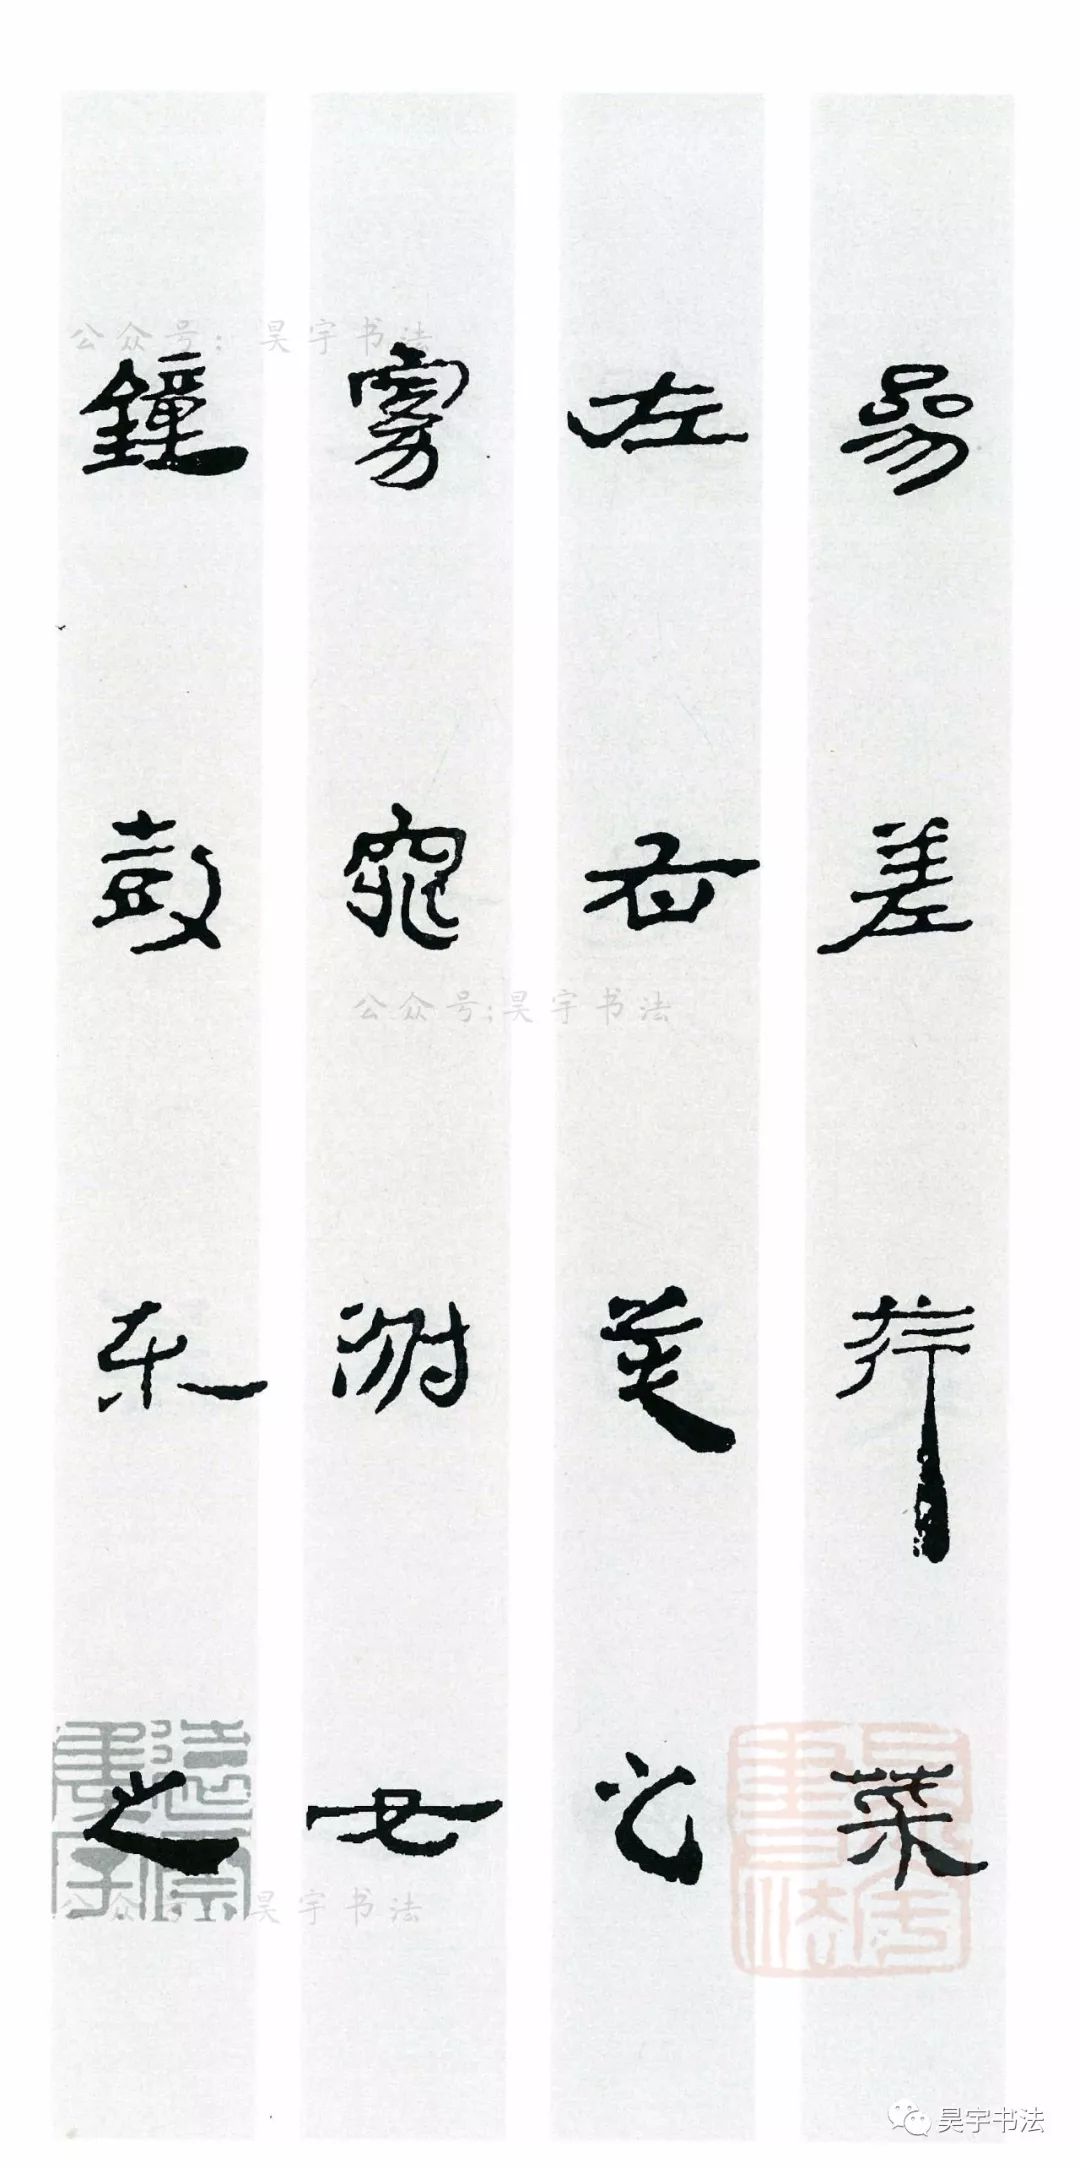 參差荇菜
左右芼之
窈窕淑女
鐘鼓樂之
公众号：昊宇书法
公众号:昊宇书法
公众号：昊宇书法
昊宇書法
昊宇书法